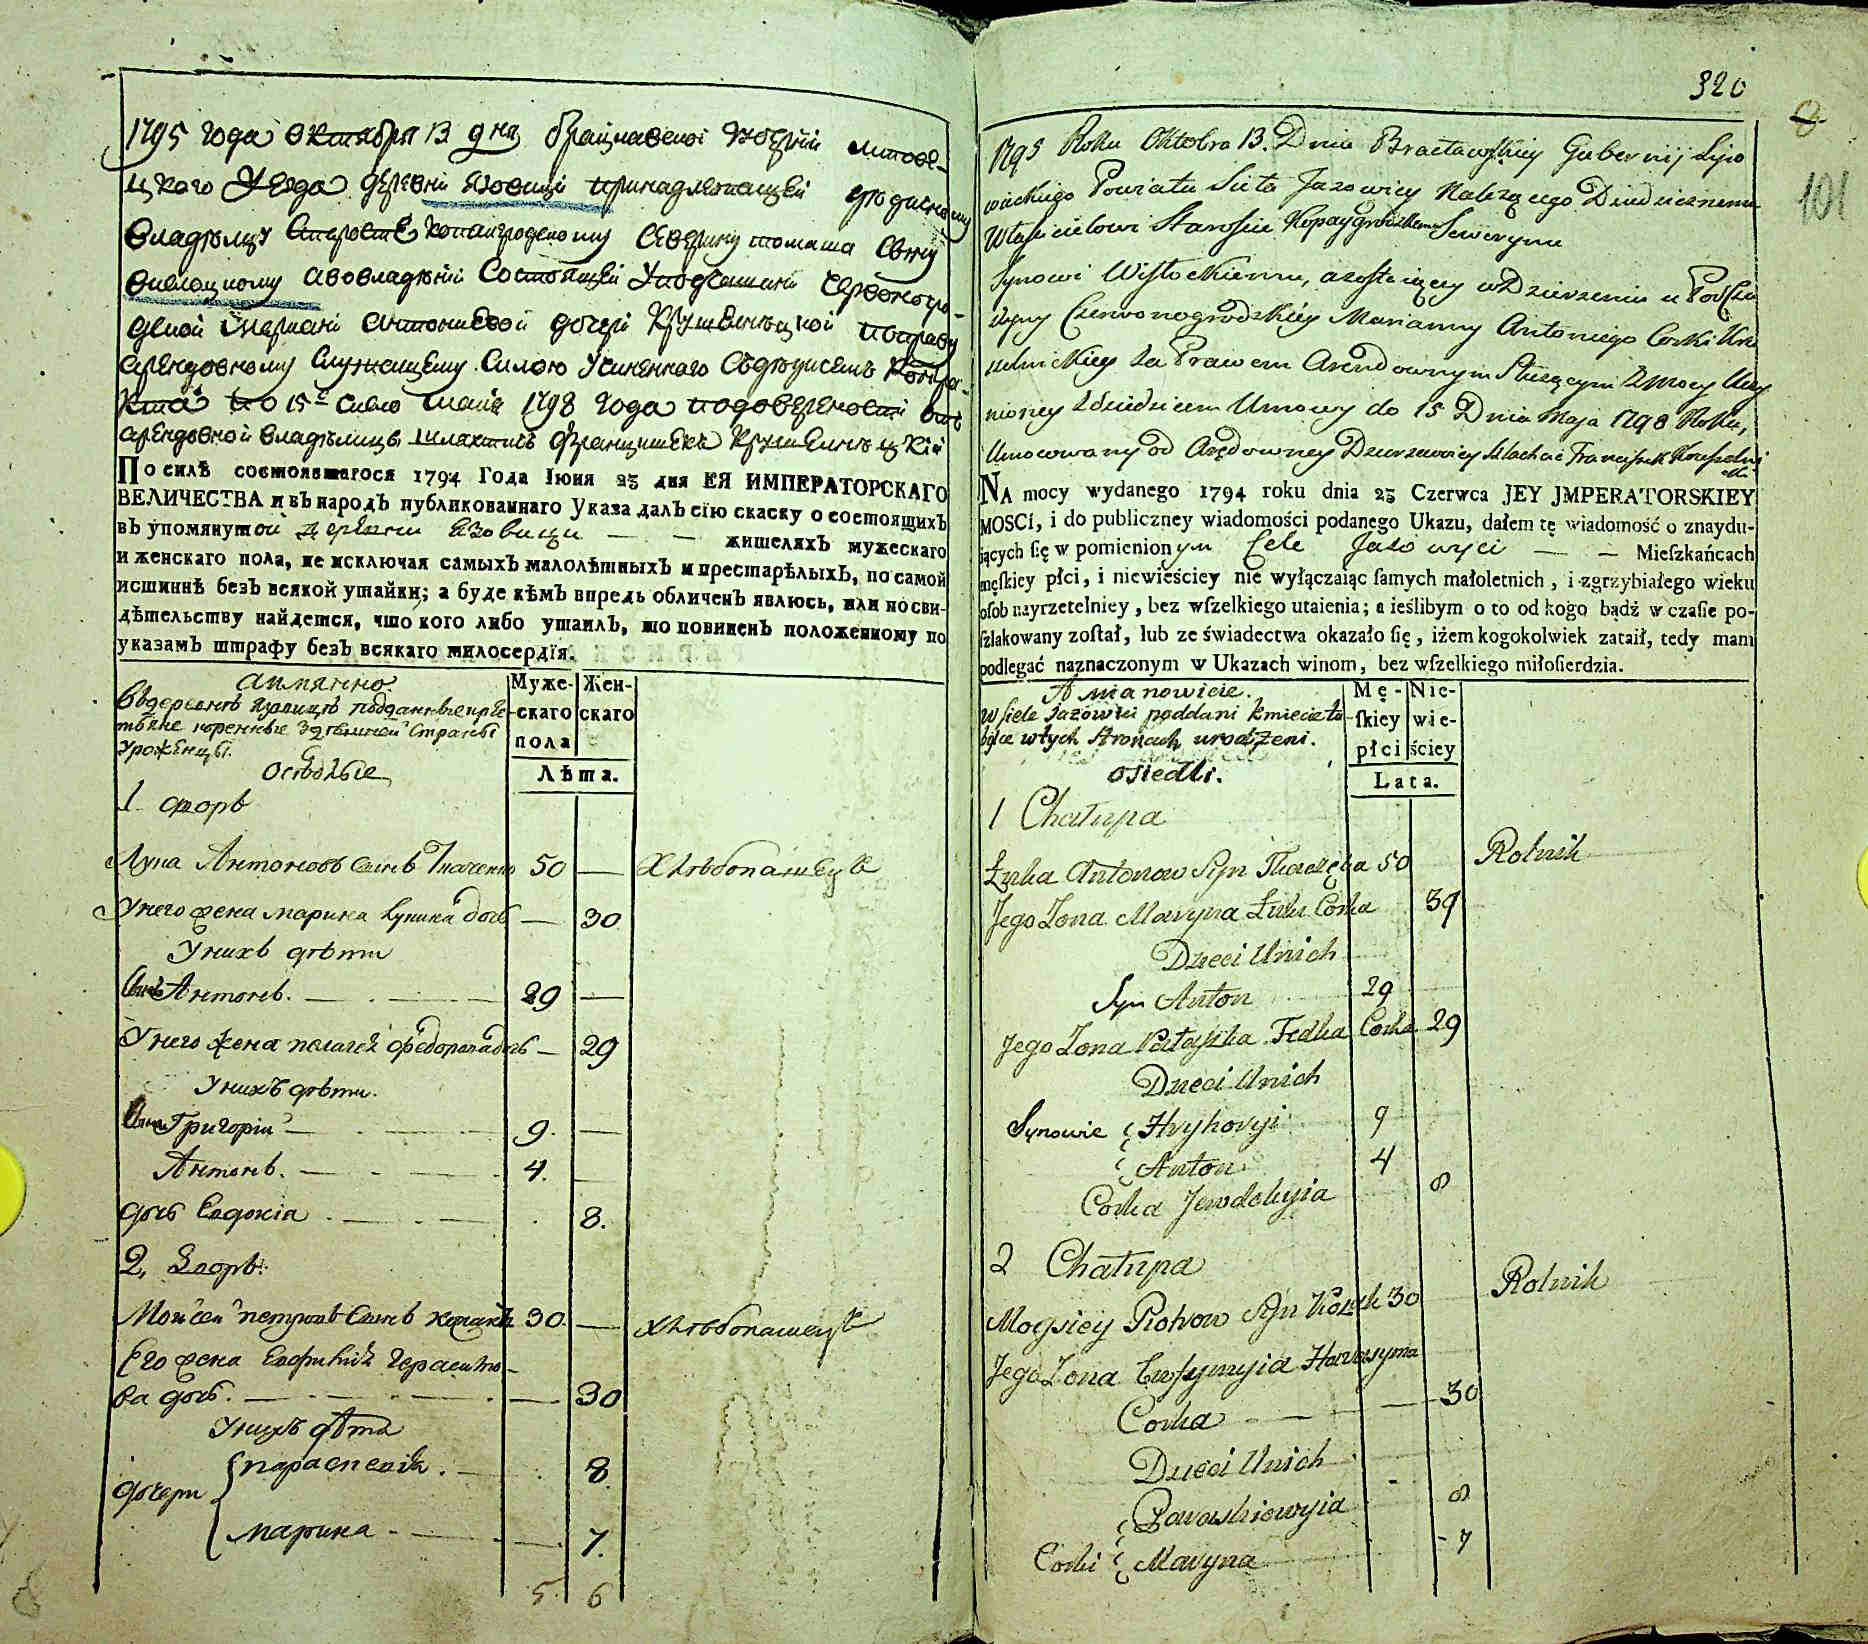 1795 года октября 13 дня брацлавской губерніи липове-
цкаго уезда деревни язовици принадлежащей
владѣлцу старостѣ копаигродскому северину томаша сину
вислоцкому авовладѣніи состоящей
антониевой дочери крушелницкой по праву
арендовному служащему силою контра-
кта по 15е число маия 1798 года
арендовной владѣлицѣ шляхтичъ францишекъ крушелницкій
По силѣ состоявшагося 1794 Года Іюня 23 дня ЕЯ ИМПЕРАТОРСКАГО
ВЕЛИЧЕСТВА и въ народъ публикованнаго Указа далъ сію скаску о состоящихъ
въ упомянутой деревни язовици — — жителяхъ мужескаго
и женскаго пола, не исключая самыхъ малолѣтныхъ и престарѣлыхъ, по самой
истиннѣ безъ всякой утайки; а буде кѣмъ впредь обличенъ явлюсь, или по сви-
дѣтельству найдется, что кого либо утаилъ, то повиненъ положенному по
указамъ штрафу безъ всякаго милосердїя.
аимянно
Муже-скаго пола
Жен-скаго
Лѣта.
въ деревнѣ язовицѣ подданные крес-
тьяне коренные здѣшней страны
уроженцы.
оседлые
1 дворъ
Лука Антоновъ синъ Ткаченко 50 — Хлѣбопашецъ
у него жена марина лукина дочь — 30
У нихъ дѣти
синъ Антонъ. — 29 —
У него жена пелагея федорова дочь — 29
У нихъ дѣти.
Григорій — 9. —
Антонъ. — 4. —
дочь Евдокія — 8.
2, дворъ.
Мойсей петровъ синъ козакъ 30. — хлѣбопашецъ
Его жена Ефимія герасимо-
ва дочь. — — 30
У нихъ дѣти
дочери { параскевія. — 8
марина — — 7.
5 6
320
8
101
1795 Roku Oktobra 13. Dnia Bracławskiey Gubernij Lipo
wieckiego Powiatu Sieła Jazowicy Nalezącego Dziedzicznemu
Właścicielowi Staroście Kopaygrodzkiemu Sewerynu
Synowi Wisłockiemu, azostaiący w Dzierzeniu u Podcza
szyny Czerwonogrodzkiey Maryanny Antoniego Corki Kru
szelnickiey za Prawem Arendownym Służącym z mocy Uczy
nioney z dziedzicem Umowy do 15 Dnia Maja 1798 Roku,
Umocowany od Arędowney Dzierzawicy Szlachcic Franciszek Kruszelni
cki
NA mocy wydanego 1794 roku dnia 23 Czerwca JEY JMPERATORSKIEY
MOSCI, i do publiczney wiadomości podanego Ukazu, dałem tę wiadomość o znaydu-
iących ſię w pomienionym Sele Jazowyci — — Mieſzkańcach
męſkiey płci, i niewieściey nie wyłączaiąc ſamych małoletnich, i zgrzybiałego wieku
oſob nayrzetelniey, bez wſzelkiego utaienia; a ieślibym o to od kogo bądź w czaſie po-
ſzlakowany zoſtał, lub ze świadectwa okazało ſię, iżem kogokolwiek zataił, tedy mam
podlegać naznaczonym w Ukazach winom, bez wſzelkiego miłoſierdzia.
A mianowicie.
Mę-ſkiey płci
Nie-wie-ściey
Lata.
w siele Jazowici poddani kmiecie tu
będące w tych stronach urodzeni.
osiedli.
1 Chałupa
Łuka Antonow Syn Tkaczęka 50 Rolnik
Jego Zona Maryna Łuki Corka 39
Dzieci Unich
Syn Anton 29
Jego Zona Pałaszka Fedka Corka 29
Dzieci Unich
Synowie { Hryhoryi 9
Anton 4
Corka Jewdokyia 8
2 Chałupa
Moysiey Piotrow Syn Kozak 30 Rolnik
Jego Zona Ewfymyia Harasyma
Corka — — 30
Dzieci Unich
Parawskiewyia 8
Corki { Maryna - 7